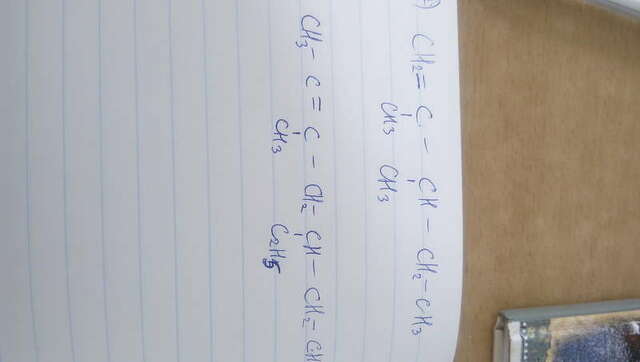 CH₂ = C - CH - CH₂ - CH₃
CH₃ CH₃
CH₃ - C = C - CH₂ - CH - CH₂ - CH
CH₃ C₂H₅